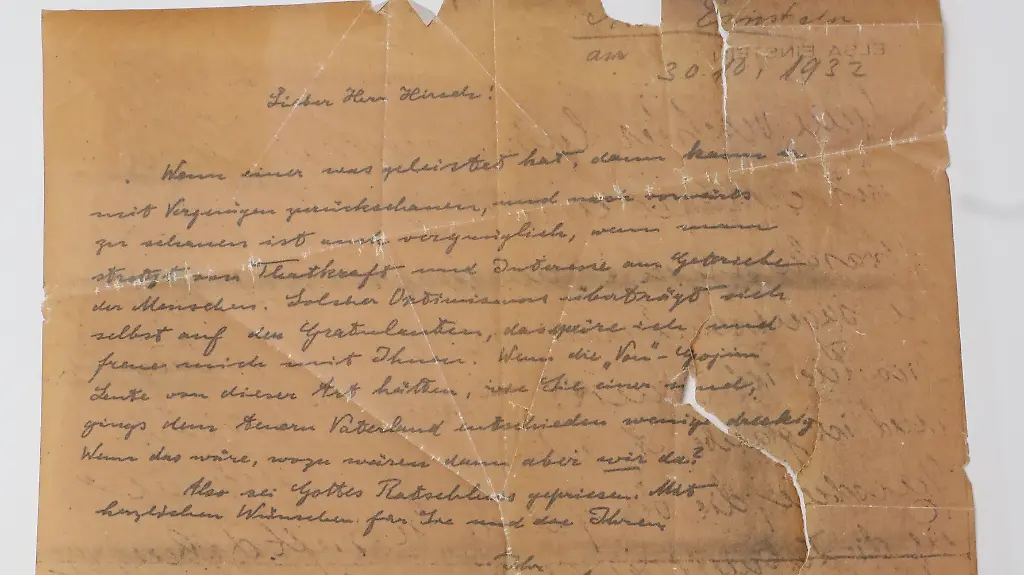 Einstein
am
30.10.1932
Lieber Herr Hirsch!
Wenn einer was geleistet hat, dann kann er
mit Vergnügen zurückschauen, und nur vorwärts
zu schauen ist auch vergnüglich, wenn man
strotzt von Thatkraft und Interesse am Getriebe
der Menschen. Solcher Optimismus überträgt sich
selbst auf den Gratulanten, das spüre ich und
freue mich mit Ihnen. Wenn die „Von"-Gojim
Leute von dieser Art hätten, wie Sie einer sind,
gings dem teuern Vaterland entschieden weniger dreckig
Wenn das wäre, wozu wären dann aber wir da?
Also sei Gottes Ratschluss gepriesen. Mit
herzlichen Wünschen für Sie und die Ihren
Ihr